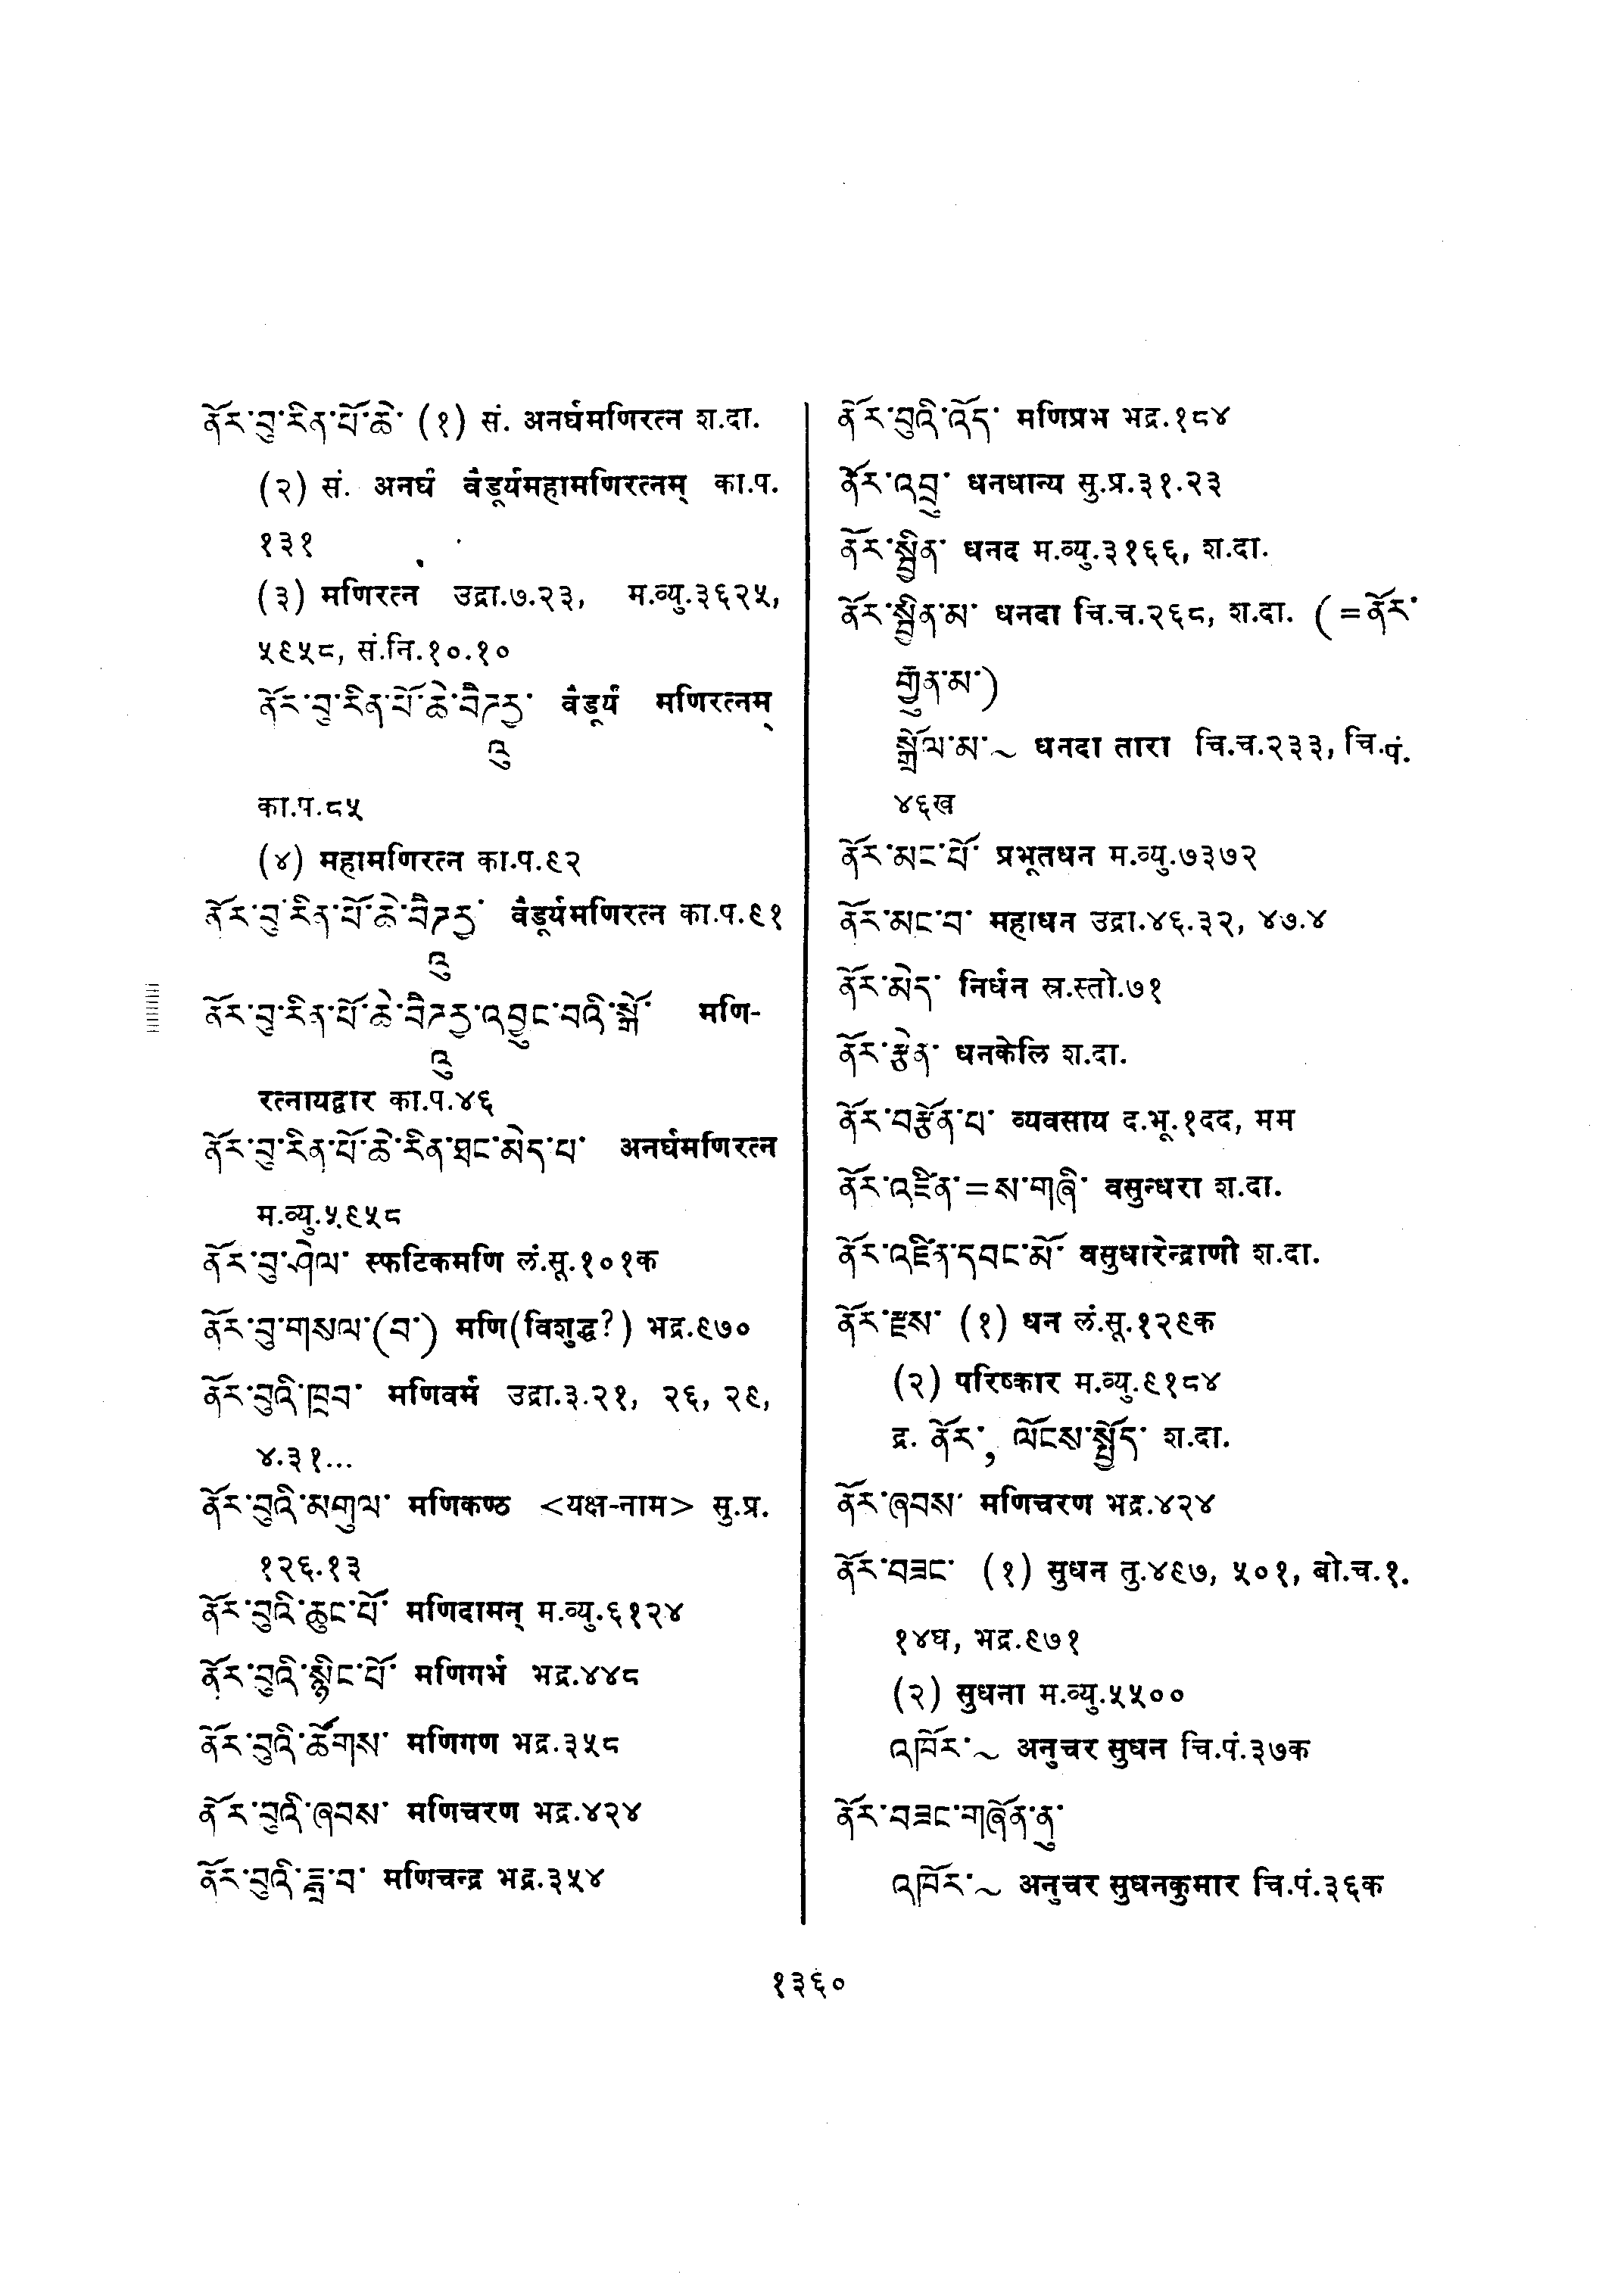 ནོར་བུ་རིན་པོ་ཆེ་ (१) सं. अनर्घमणिरत्न श.दा.
(२) सं. अनर्घं वैडूर्यमहामणिरत्नम् का.प.
१३१
(३) मणिरत्न उद्रा.७.२३, म.व्यु.३६२५,
५९५८, सं.नि.१०.१०
ནོར་བུ་རིན་པོ་ཆེ་བཻཌཱུརྱ་ वैडूर्यं मणिरत्नम्
का.प.८५
(४) महामणिरत्न का.प.९२
ནོར་བུ་རིན་པོ་ཆེ་བཻཌཱུརྱ་ वैडूर्यमणिरत्न का.प.९१
ནོར་བུ་རིན་པོ་ཆེ་བཻཌཱུརྱ་འབྱུང་བའི་སྒོ་ मणि-
रत्नायद्वार का.प.४६
ནོར་བུ་རིན་པོ་ཆེ་རིན་ཐང་མེད་པ་ अनर्घमणिरत्न
म.व्यु.५९५८
ནོར་བུ་ཤེལ་ स्फटिकमणि लं.सू.१०१क
ནོར་བུ་གསལ་(བ་) मणि(विशुद्ध?) भद्र.९७०
ནོར་བུའི་ཁྲབ་ मणिवर्म उद्रा.३.२१, २६, २९,
४.३१...
ནོར་བུའི་མགུལ་ मणिकण्ठ <यक्ष-नाम> सु.प्र.
१२६.१३
ནོར་བུའི་ཆུང་པོ་ मणिदामन् म.व्यु.६१२४
ནོར་བུའི་སྙིང་པོ་ मणिगर्भ भद्र.४४८
ནོར་བུའི་ཚོགས་ मणिगण भद्र.३५८
ནོར་བུའི་ཞབས་ मणिचरण भद्र.४२४
ནོར་བུའི་ཟླ་བ་ मणिचन्द्र भद्र.३५४
ནོར་བུའི་འོད་ मणिप्रभ भद्र.१८४
ནོར་འབྲུ་ धनधान्य सु.प्र.३१.२३
ནོར་སྦྱིན་ धनद म.व्यु.३१६६, श.दा.
ནོར་སྦྱིན་མ་ धनदा चि.च.२६८, श.दा. (=ནོར་
རྒྱུན་མ་)
སྒྲོལ་མ་~ धनदा तारा चि.च.२३३, चि.पं.
४६ख
ནོར་མང་པོ་ प्रभूतधन म.व्यु.७३७२
ནོར་མང་བ་ महाधन उद्रा.४६.३२, ४७.४
ནོར་མེད་ निर्धन स्र.स्तो.७१
ནོར་རྩེན་ धनकेलि श.दा.
ནོར་བརྩོན་པ་ व्यवसाय द.भू.१दद, मम
ནོར་འཛིན་=ས་གཞི་ वसुन्धरा श.दा.
ནོར་འཛིན་དབང་མོ་ वसुधारेन्द्राणी श.दा.
ནོར་རྫས་ (१) धन लं.सू.१२९क
(२) परिष्कार म.व्यु.९१८४
द्र. ནོར་, ལོངས་སྤྱོད་ श.दा.
ནོར་ཞབས་ मणिचरण भद्र.४२४
ནོར་བཟང་ (१) सुधन तु.४९७, ५०१, बो.च.१.
१४घ, भद्र.९७१
(२) सुधना म.व्यु.५५००
འཁོར་~ अनुचर सुधन चि.पं.३७क
ནོར་བཟང་གཞོན་ནུ་
འཁོར་~ अनुचर सुधनकुमार चि.पं.३६क
१३६०